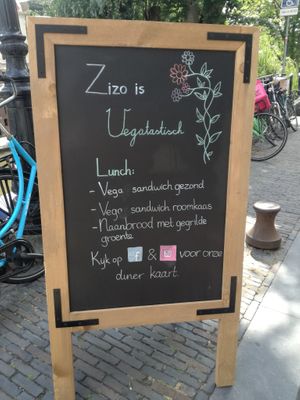 Zizo is
Vegatastisch
Lunch:
- Vega sandwich gezond
- Vega sandwich roomkaas
- Naanbrood met gegrilde
groente
Kijk op f & voor onze
diner kaart.